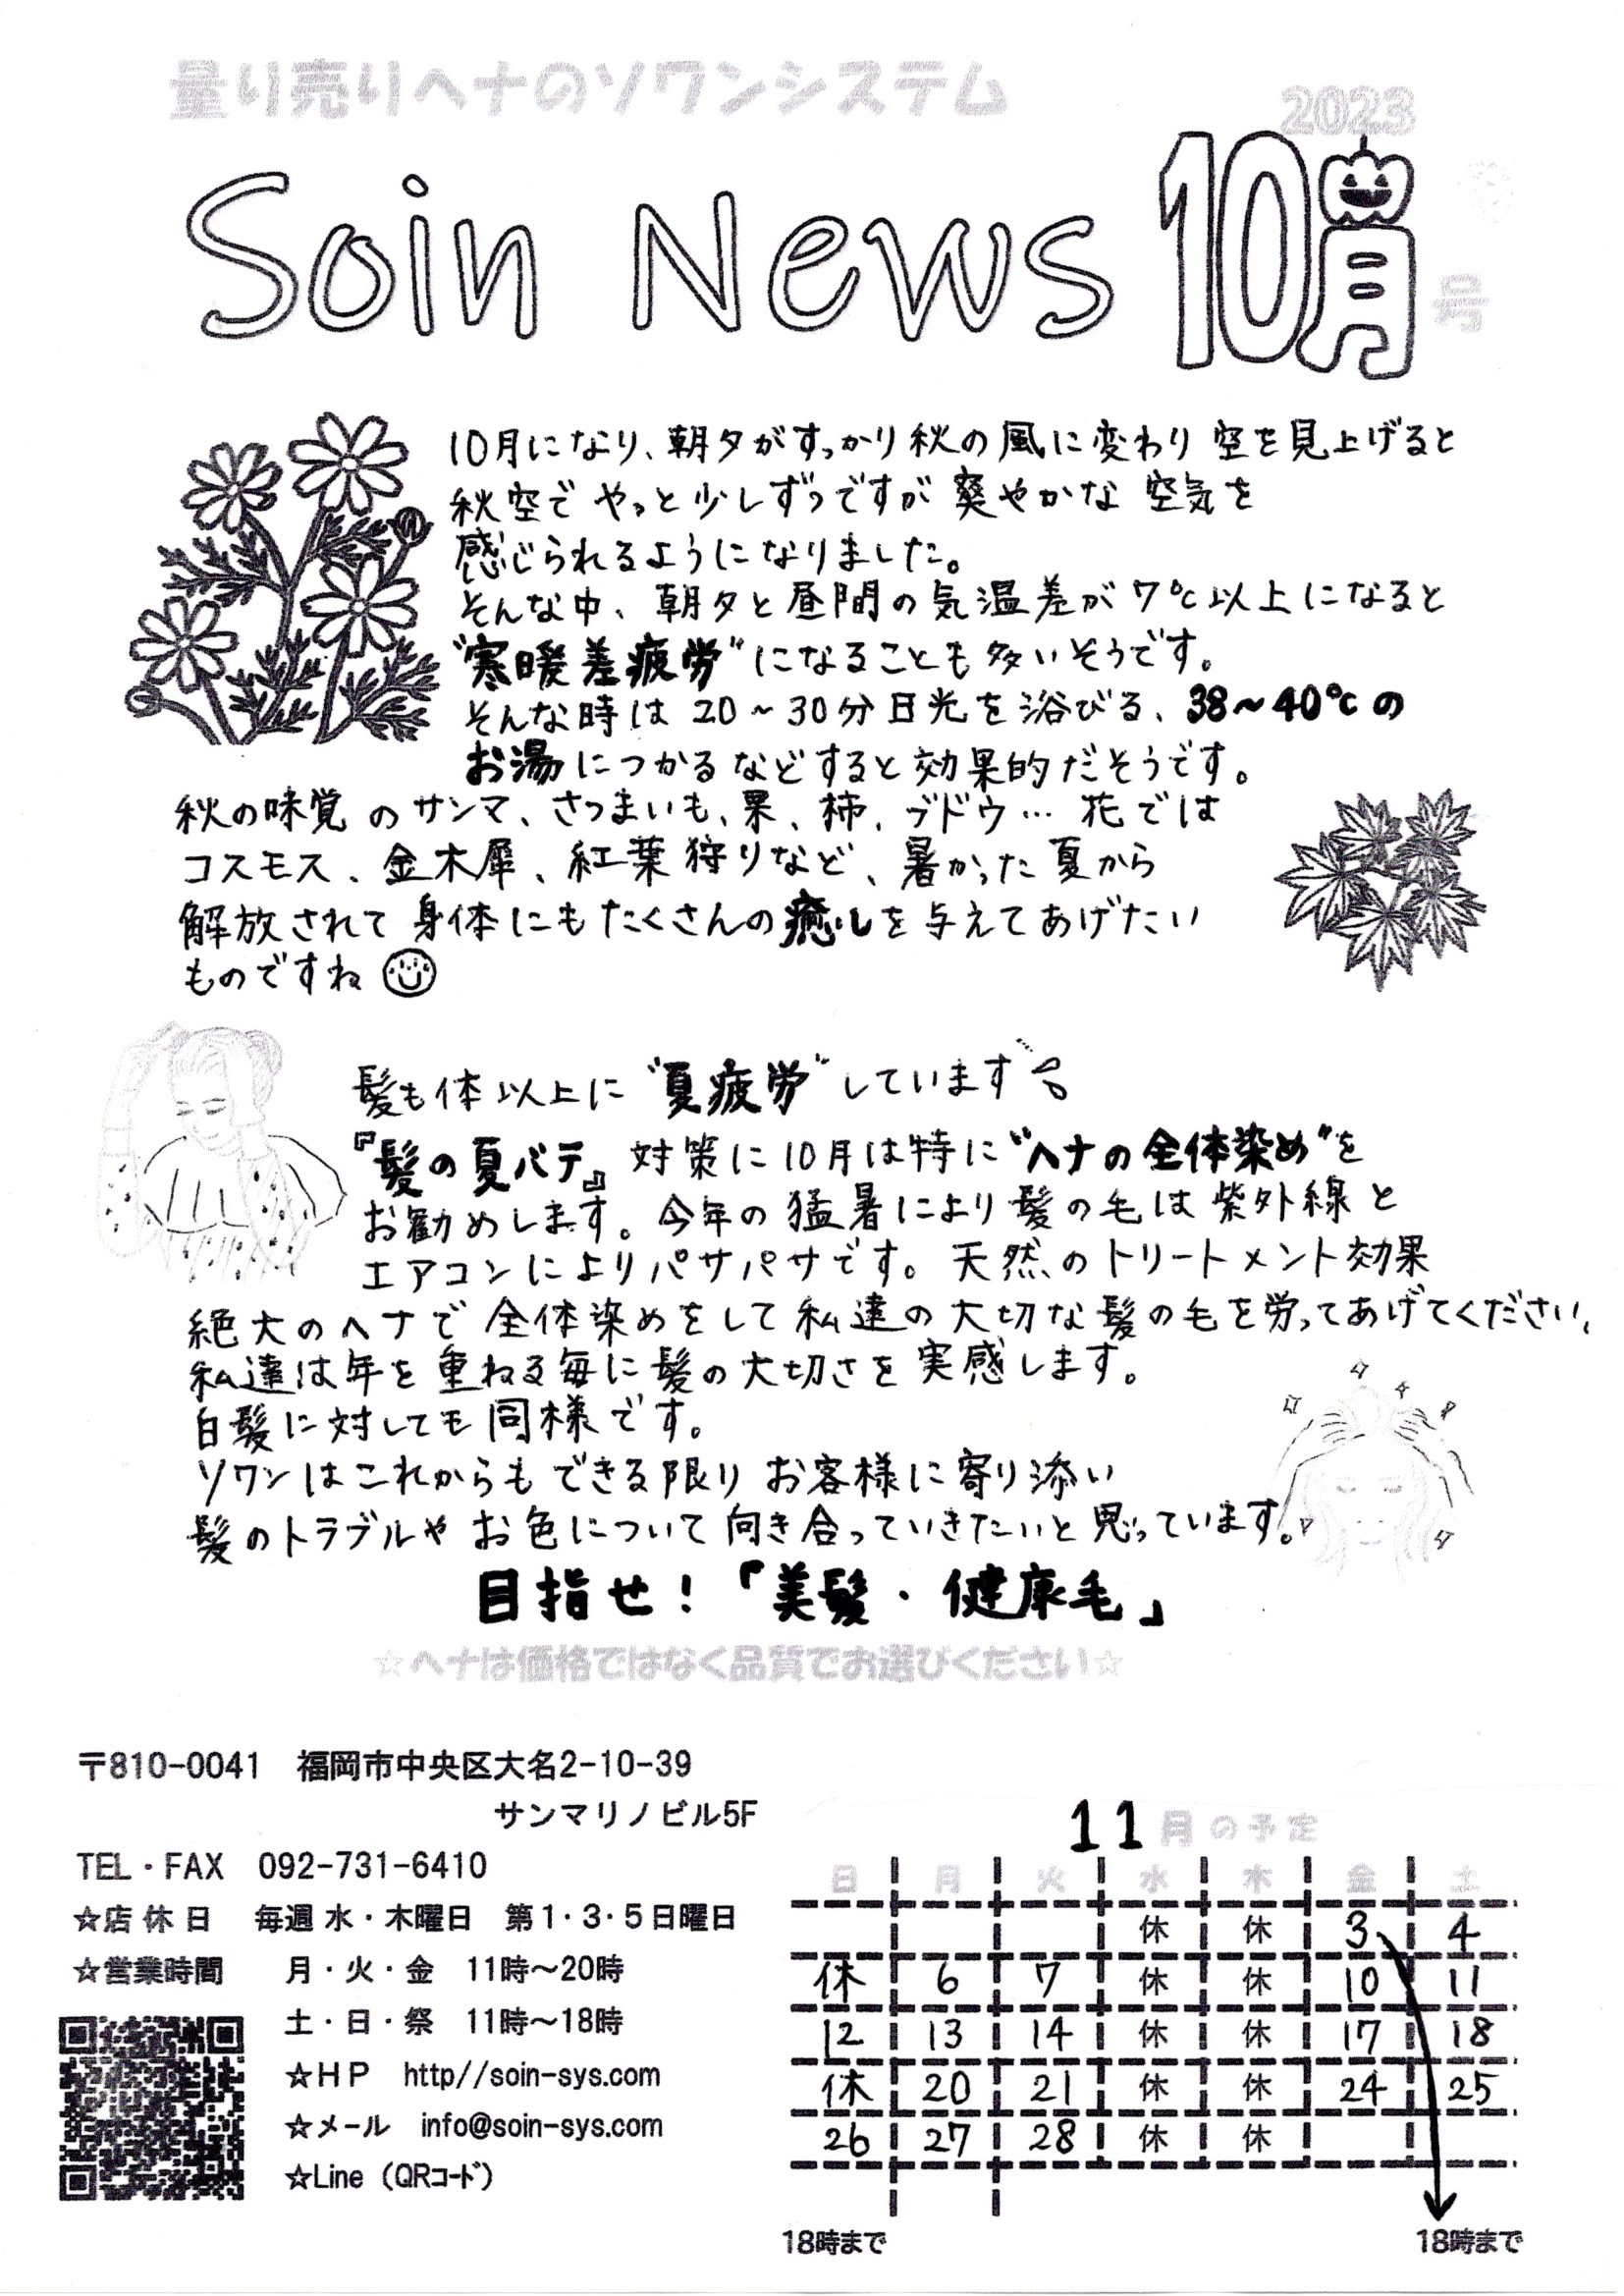 量り売りヘナのソワンシステム
2023
Soin News 10月号
10月になり、朝夕がすっかり秋の風に変わり 空を見上げると
秋空で やっと少しずつですが 爽やかな 空気を
感じられるようになりました。
そんな中、朝夕と昼間の気温差が7℃以上になると
"寒暖差疲労"になることも多いそうです。
そんな時は 20~30分日光を浴びる、38~40℃の
お湯につかるなどすると効果的だそうです。
秋の味覚 のサンマ、さつまいも、栗、柿、ブドウ… 花では
コスモス、金木犀、紅葉狩りなど、暑かった夏から
解放されて 身体にもたくさんの癒しを与えてあげたい
ものですね
髪も体以上に "夏疲労" しています
『髪の夏バテ』対策に10月は特に "ヘナの全体染め"を
お勧めします。今年の猛暑により髪の毛は紫外線と
エアコンによりパサパサです。天然のトリートメント効果
絶大のヘナで 全体染めをして 私達の大切な髪の毛を労ってあげてください。
私達は年を重ねる毎に髪の大切さを実感します。
白髪に対しても同様です。
ソワンはこれからもできる限り お客様に寄り添い
髪のトラブルや お色について 向き合っていきたいと思っています。
目指せ!「美髪・健康毛」
☆ヘナは価格ではなく品質でお選びください☆
〒810-0041 福岡市中央区大名2-10-39
サンマリノビル5F
TEL・FAX 092-731-6410
☆店 休 日 毎週 水・木曜日 第1・3・5日曜日
☆営業時間 月・火・金 11時~20時
土・日・祭 11時~18時
☆HP http//soin-sys.com
☆メール info@soin-sys.com
☆Line (QRコード)
11月の予定
日 月 火 水 木 金 土
休 休 3 4
休 6 7 休 休 10 11
12 13 14 休 休 17 18
休 20 21 休 休 24 25
26 27 28 休 休
18時まで 18時まで